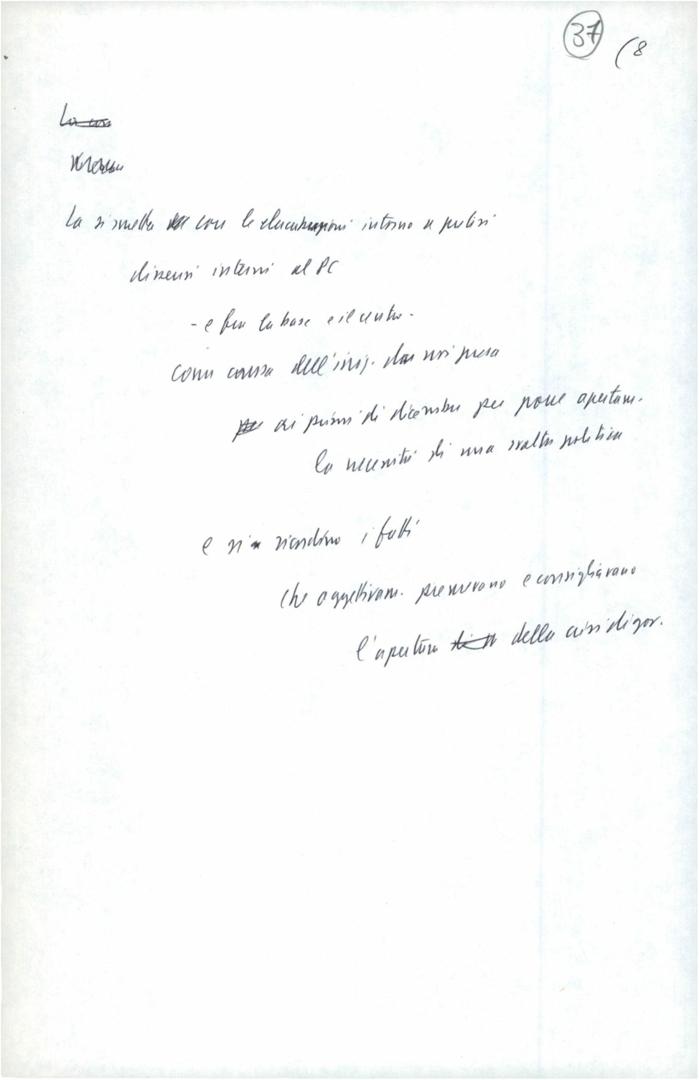 37 (8
La
La si smetta con le elucubrazioni intorno a pretesi
dissensi interni al PC
- e fra la base e il centro -
come causa dell'iniz. da noi presa
ai primi di dicembre per porre apertam.
la necessità di una svolta politica
e si ricordino i fatti
che oggettivam. premevano e consigliavano
l'apertura della crisi di gov.